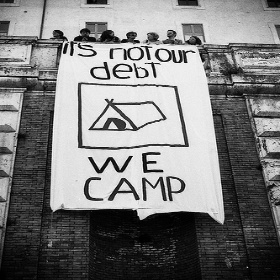 it's not our
debt
WE
CAMP